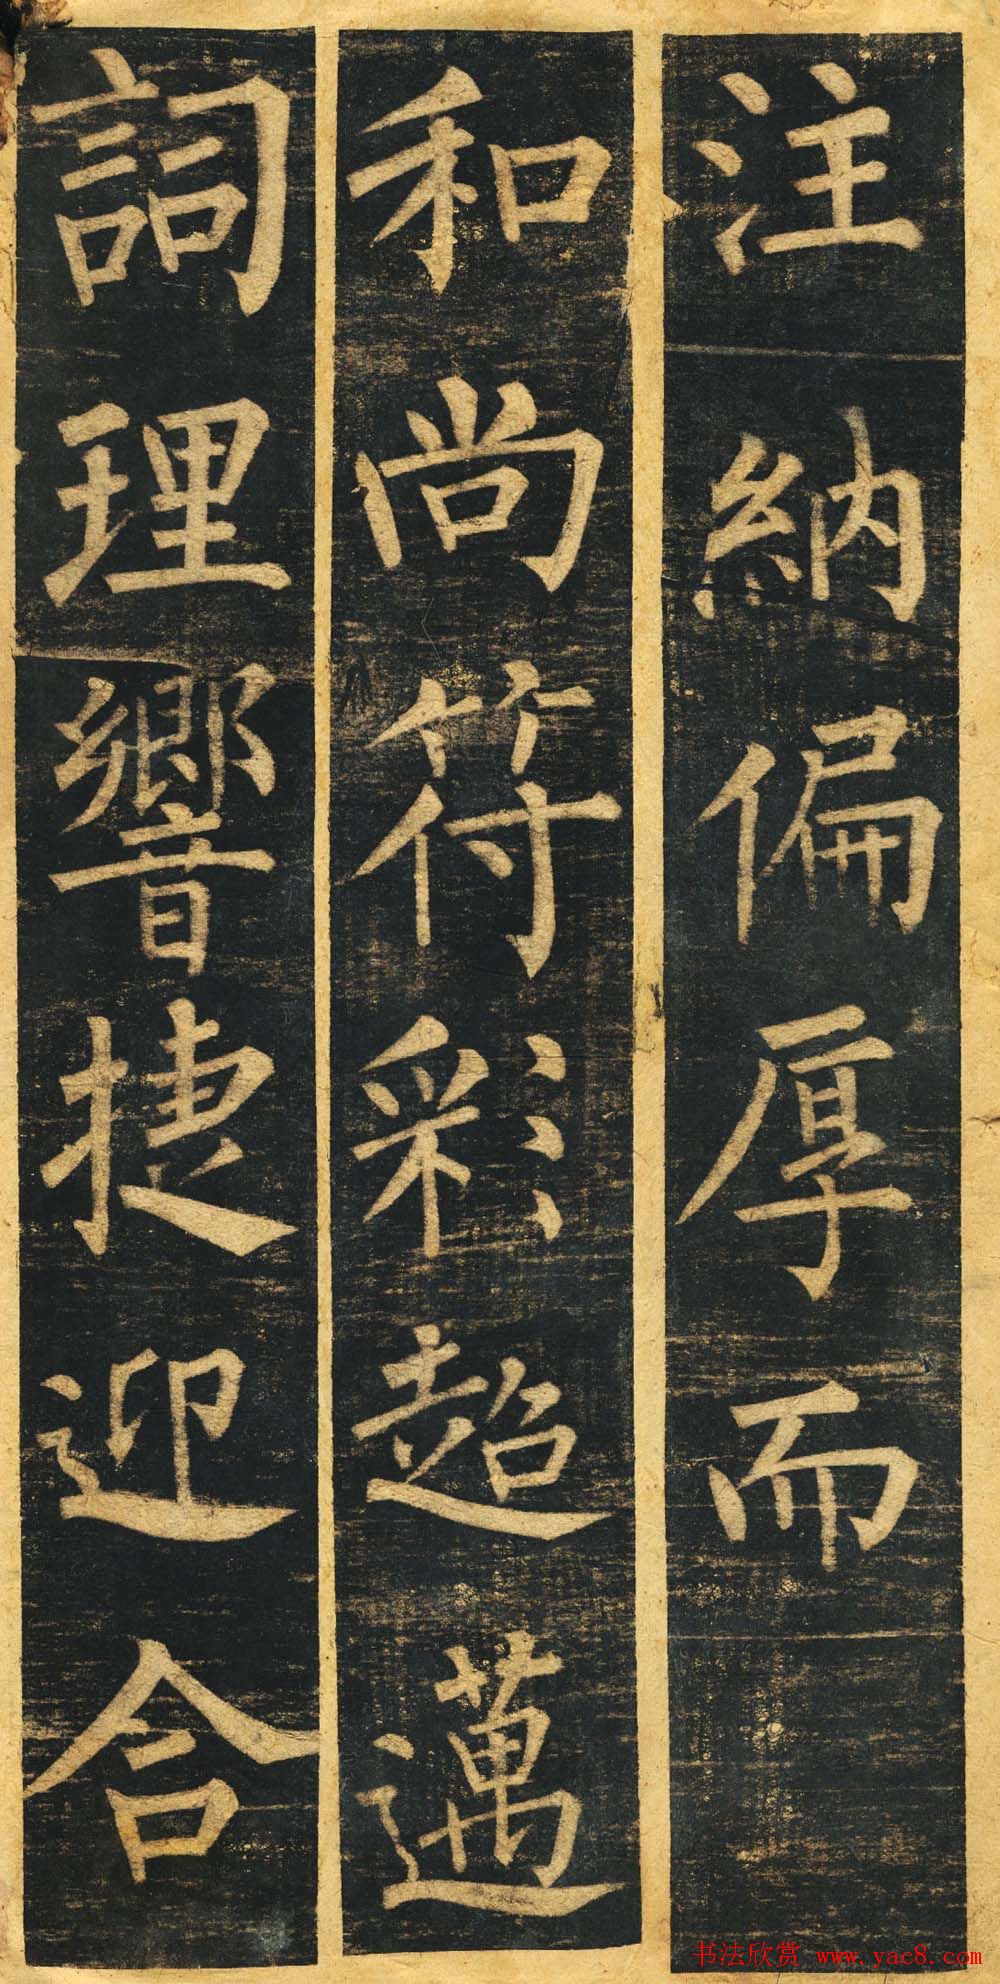 注納偏厚而
和尚符彩超邁
詞理響捷迎合
书法欣赏 www.yac8.com